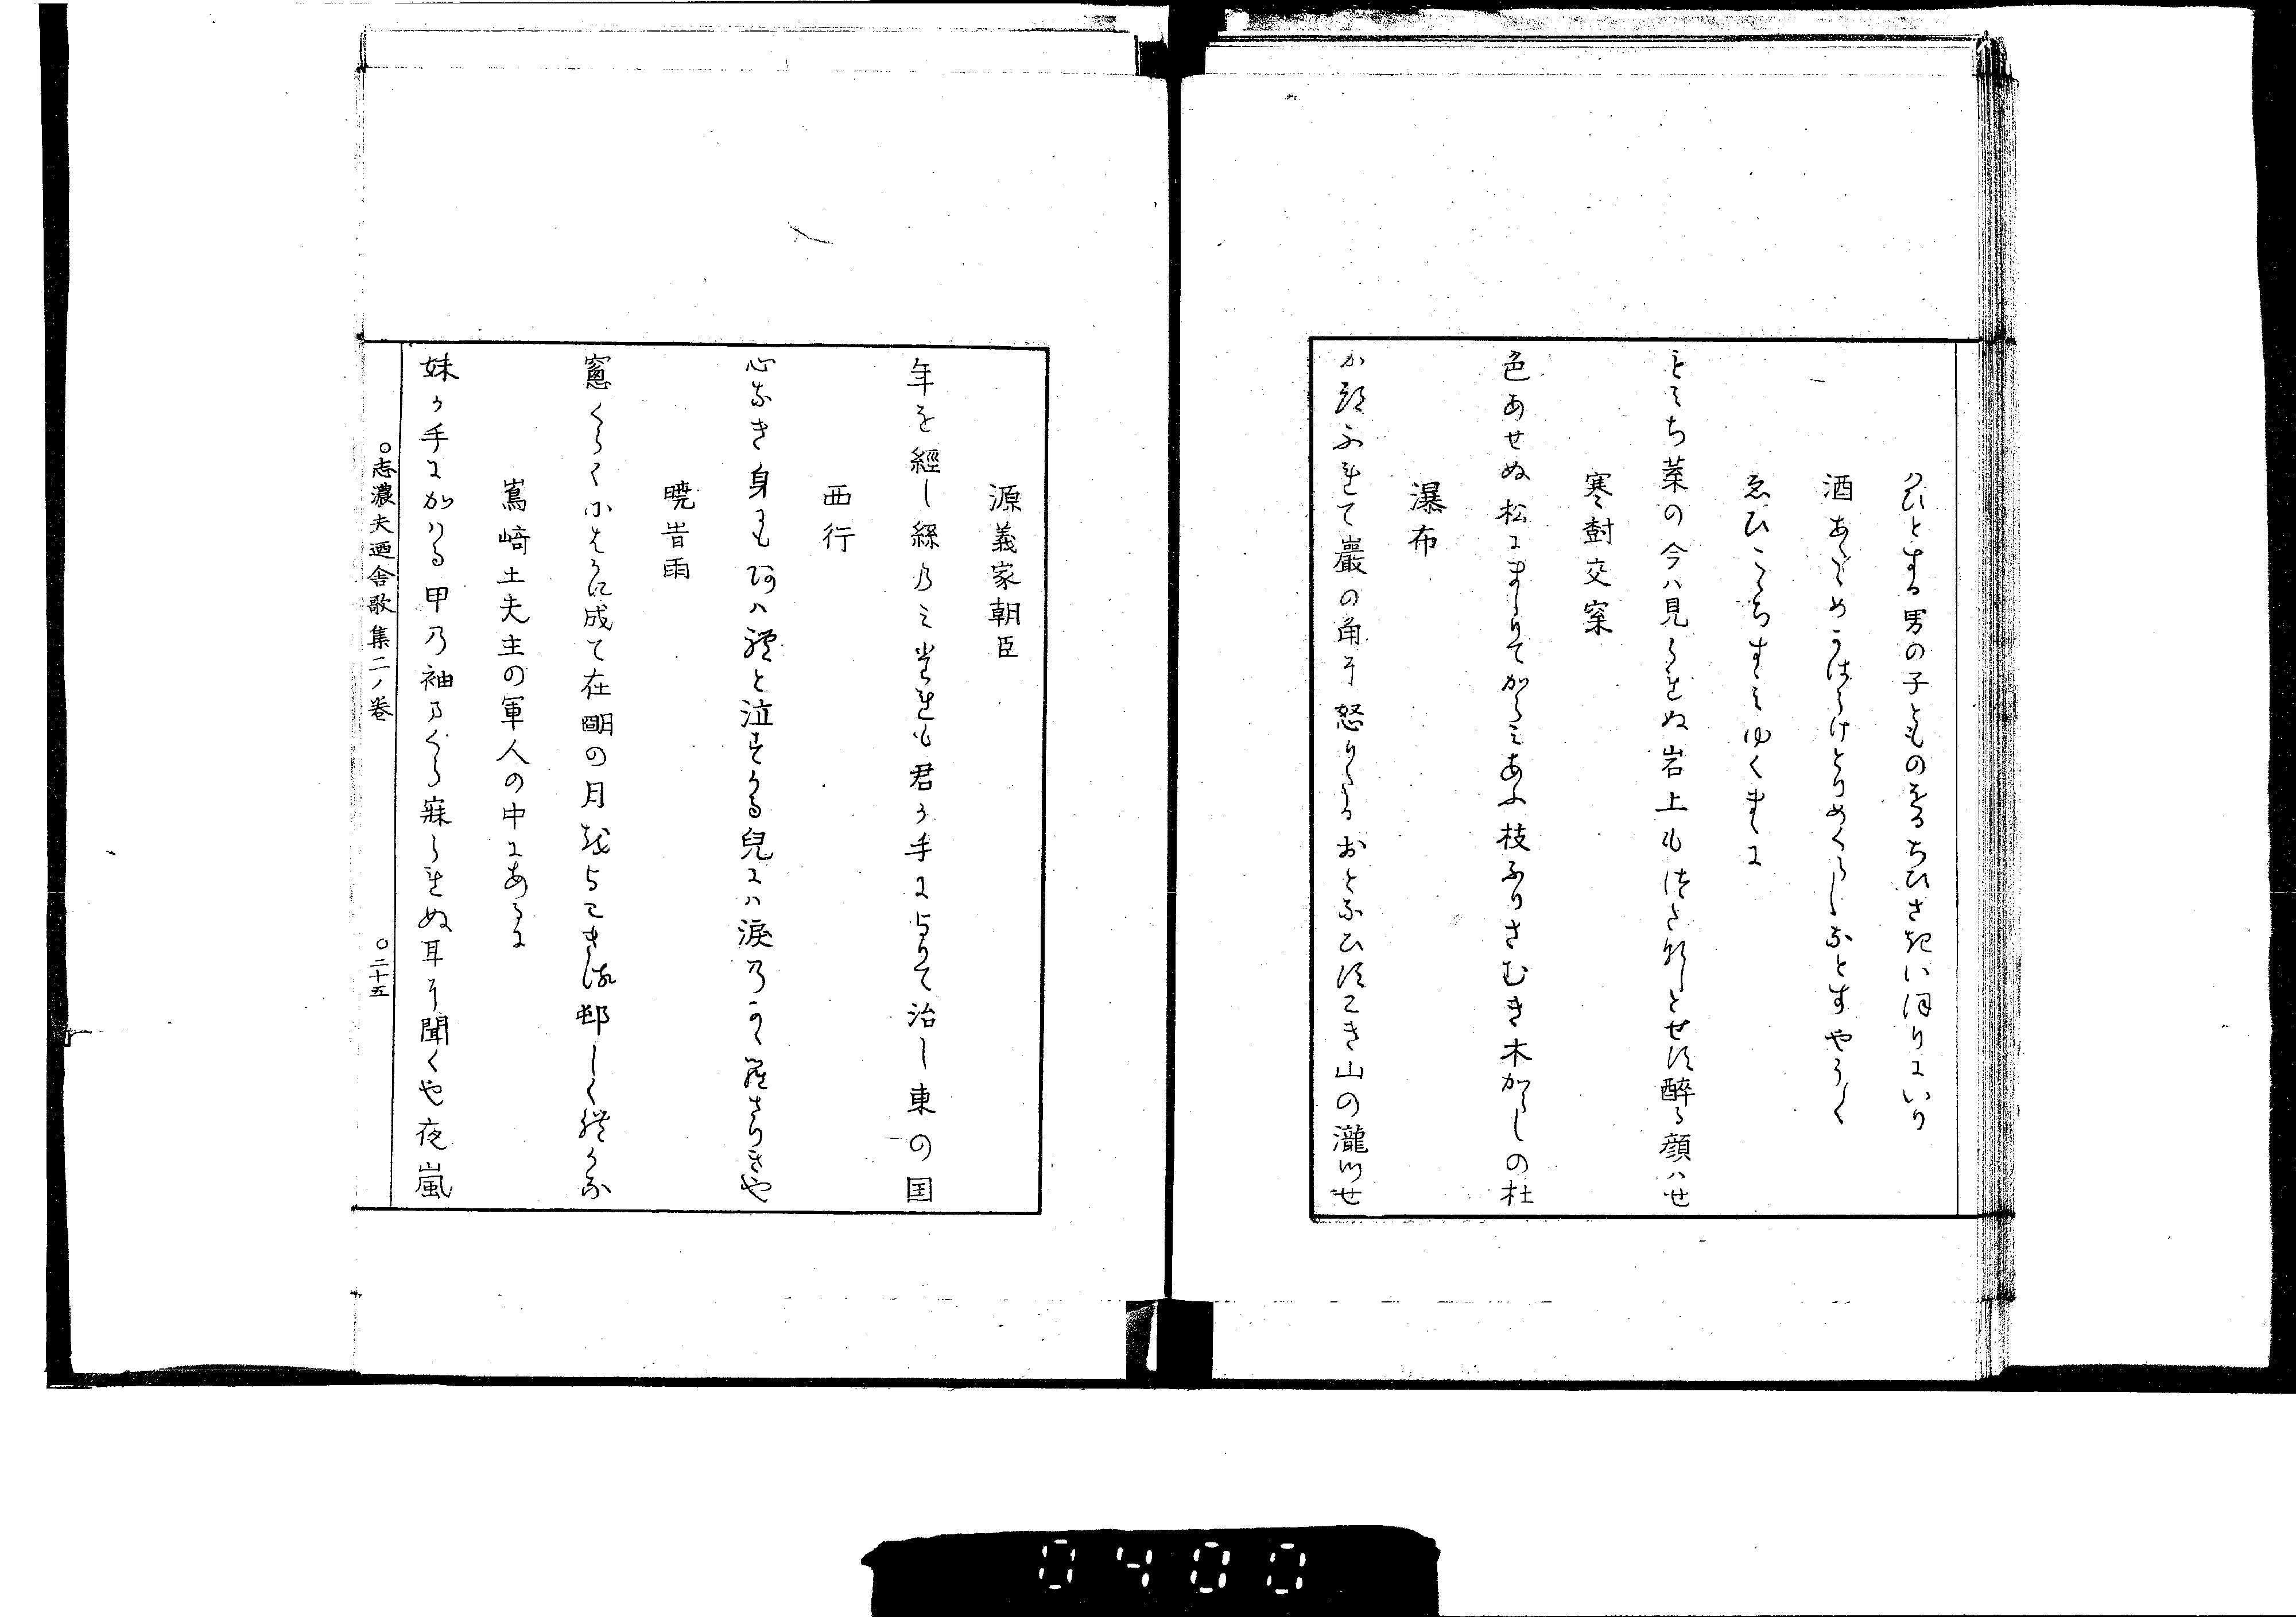 ひとする男の子とものをるちひさきいほりにいり
酒あたゝめかはらけとりめくらしなとすやう〳〵
ゑひこゝちすゝみゆくまゝに
もみち葉の今ハ見られぬ岩上もはえなしとせす醉る顔ハせ
寒樹交
色あせぬ松にましりてからみあふ枝ふりさむき木からしの杜
瀑布
ふれて巖の角に怒りたるおとなひすこき山の瀧つせ
源義家朝臣
年を經し絲のみたれも君か手によりて治し東の国
西行
心なき身にもあハれと泣すかる兒にハ涙のかゝらさりきや
曉時雨
窻くらく成て在明の月をよこきる邨しくれかな
嶌﨑土夫主の軍人の中にあるに
妹か手にかハる甲の袖のまくら寐られぬ耳に聞くや夜嵐
○志濃夫廼舍歌集二ノ卷 ○二十五
0400